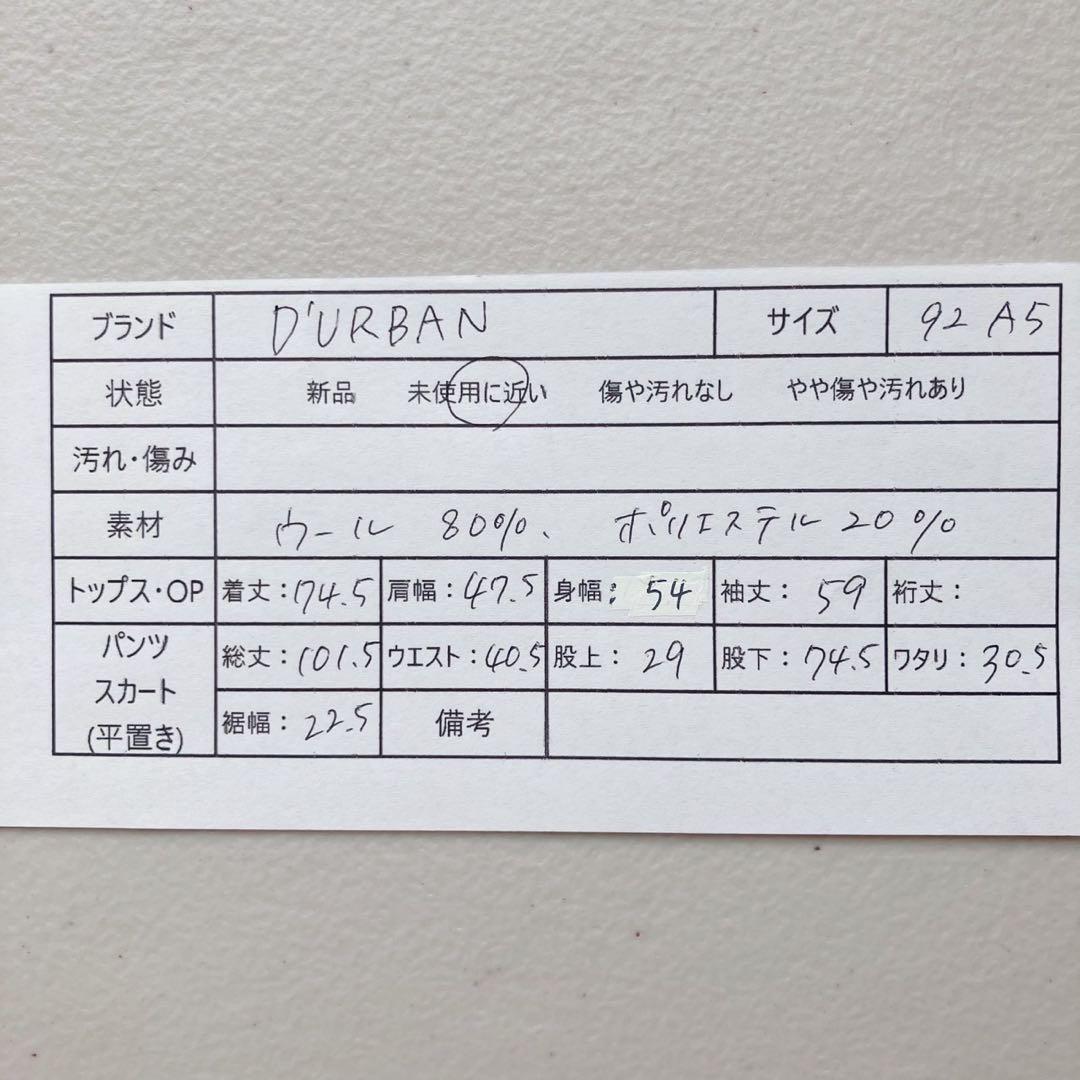 ブランド D'URBAN サイズ 92 A5
状態 新品 未使用に近い 傷や汚れなし やや傷や汚れあり
汚れ・傷み
素材 ウール 80%、 ポリエステル 20%
トップス・OP 着丈：74.5 肩幅：47.5 身幅：54 袖丈：59 裄丈：
パンツ
スカート
(平置き)
総丈：101.5 ウエスト：40.5 股上：29 股下：74.5 ワタリ：30.5
裾幅：22.5 備考